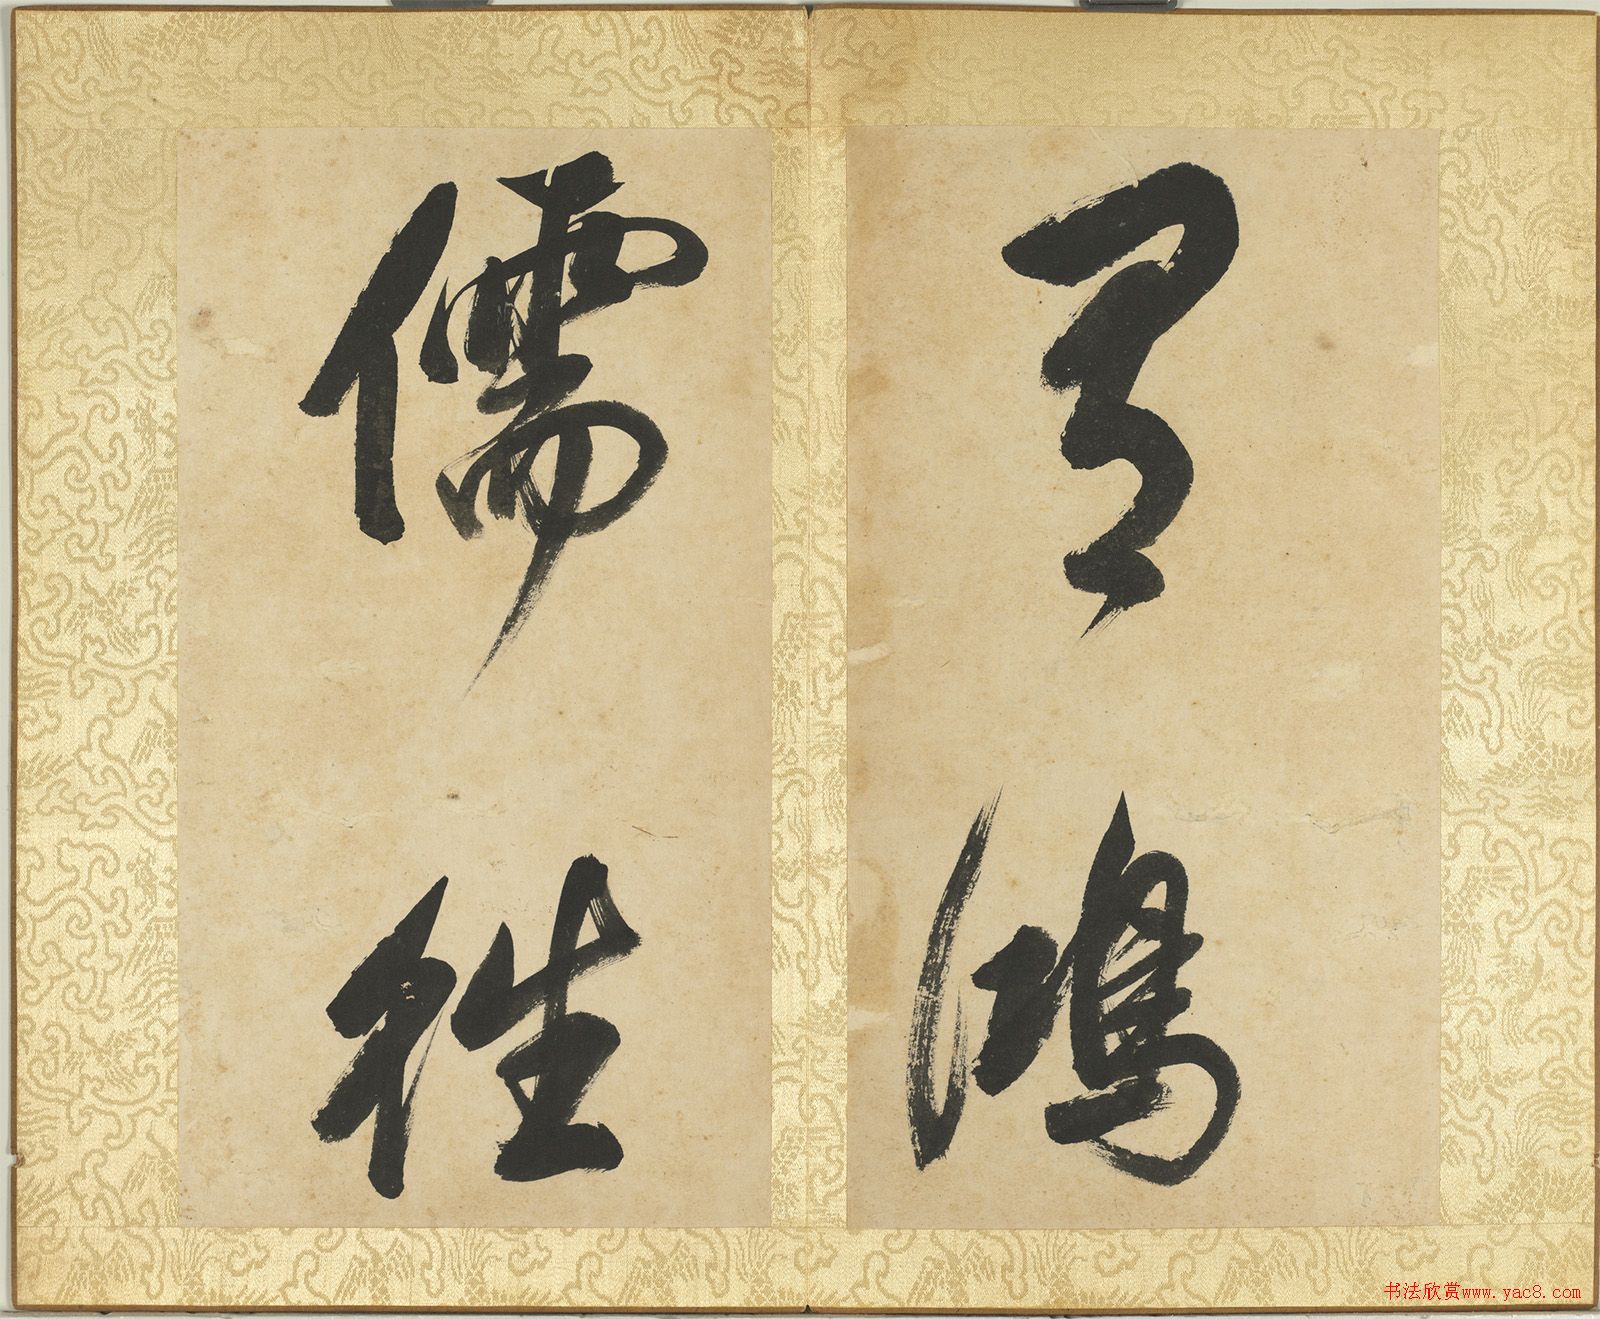 有鴻
儒往
书法欣赏www.yac8.com